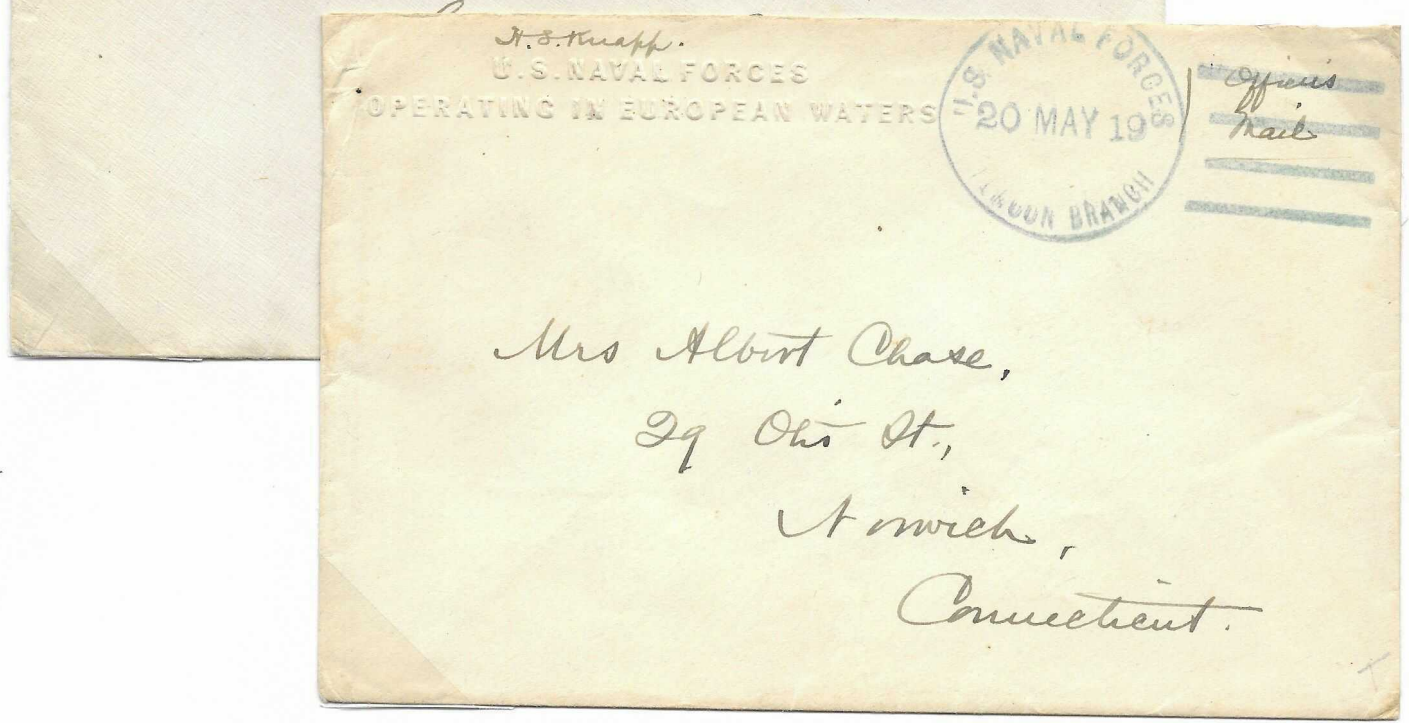 H. S. Knapp.
U.S. NAVAL FORCES
OPERATING IN EUROPEAN WATERS
U.S. NAVAL FORCES
20 MAY 19
LONDON BRANCH
Officer's
Mail
Mrs Albert Chase,
29 Otis St.,
Norwich,
Connecticut.